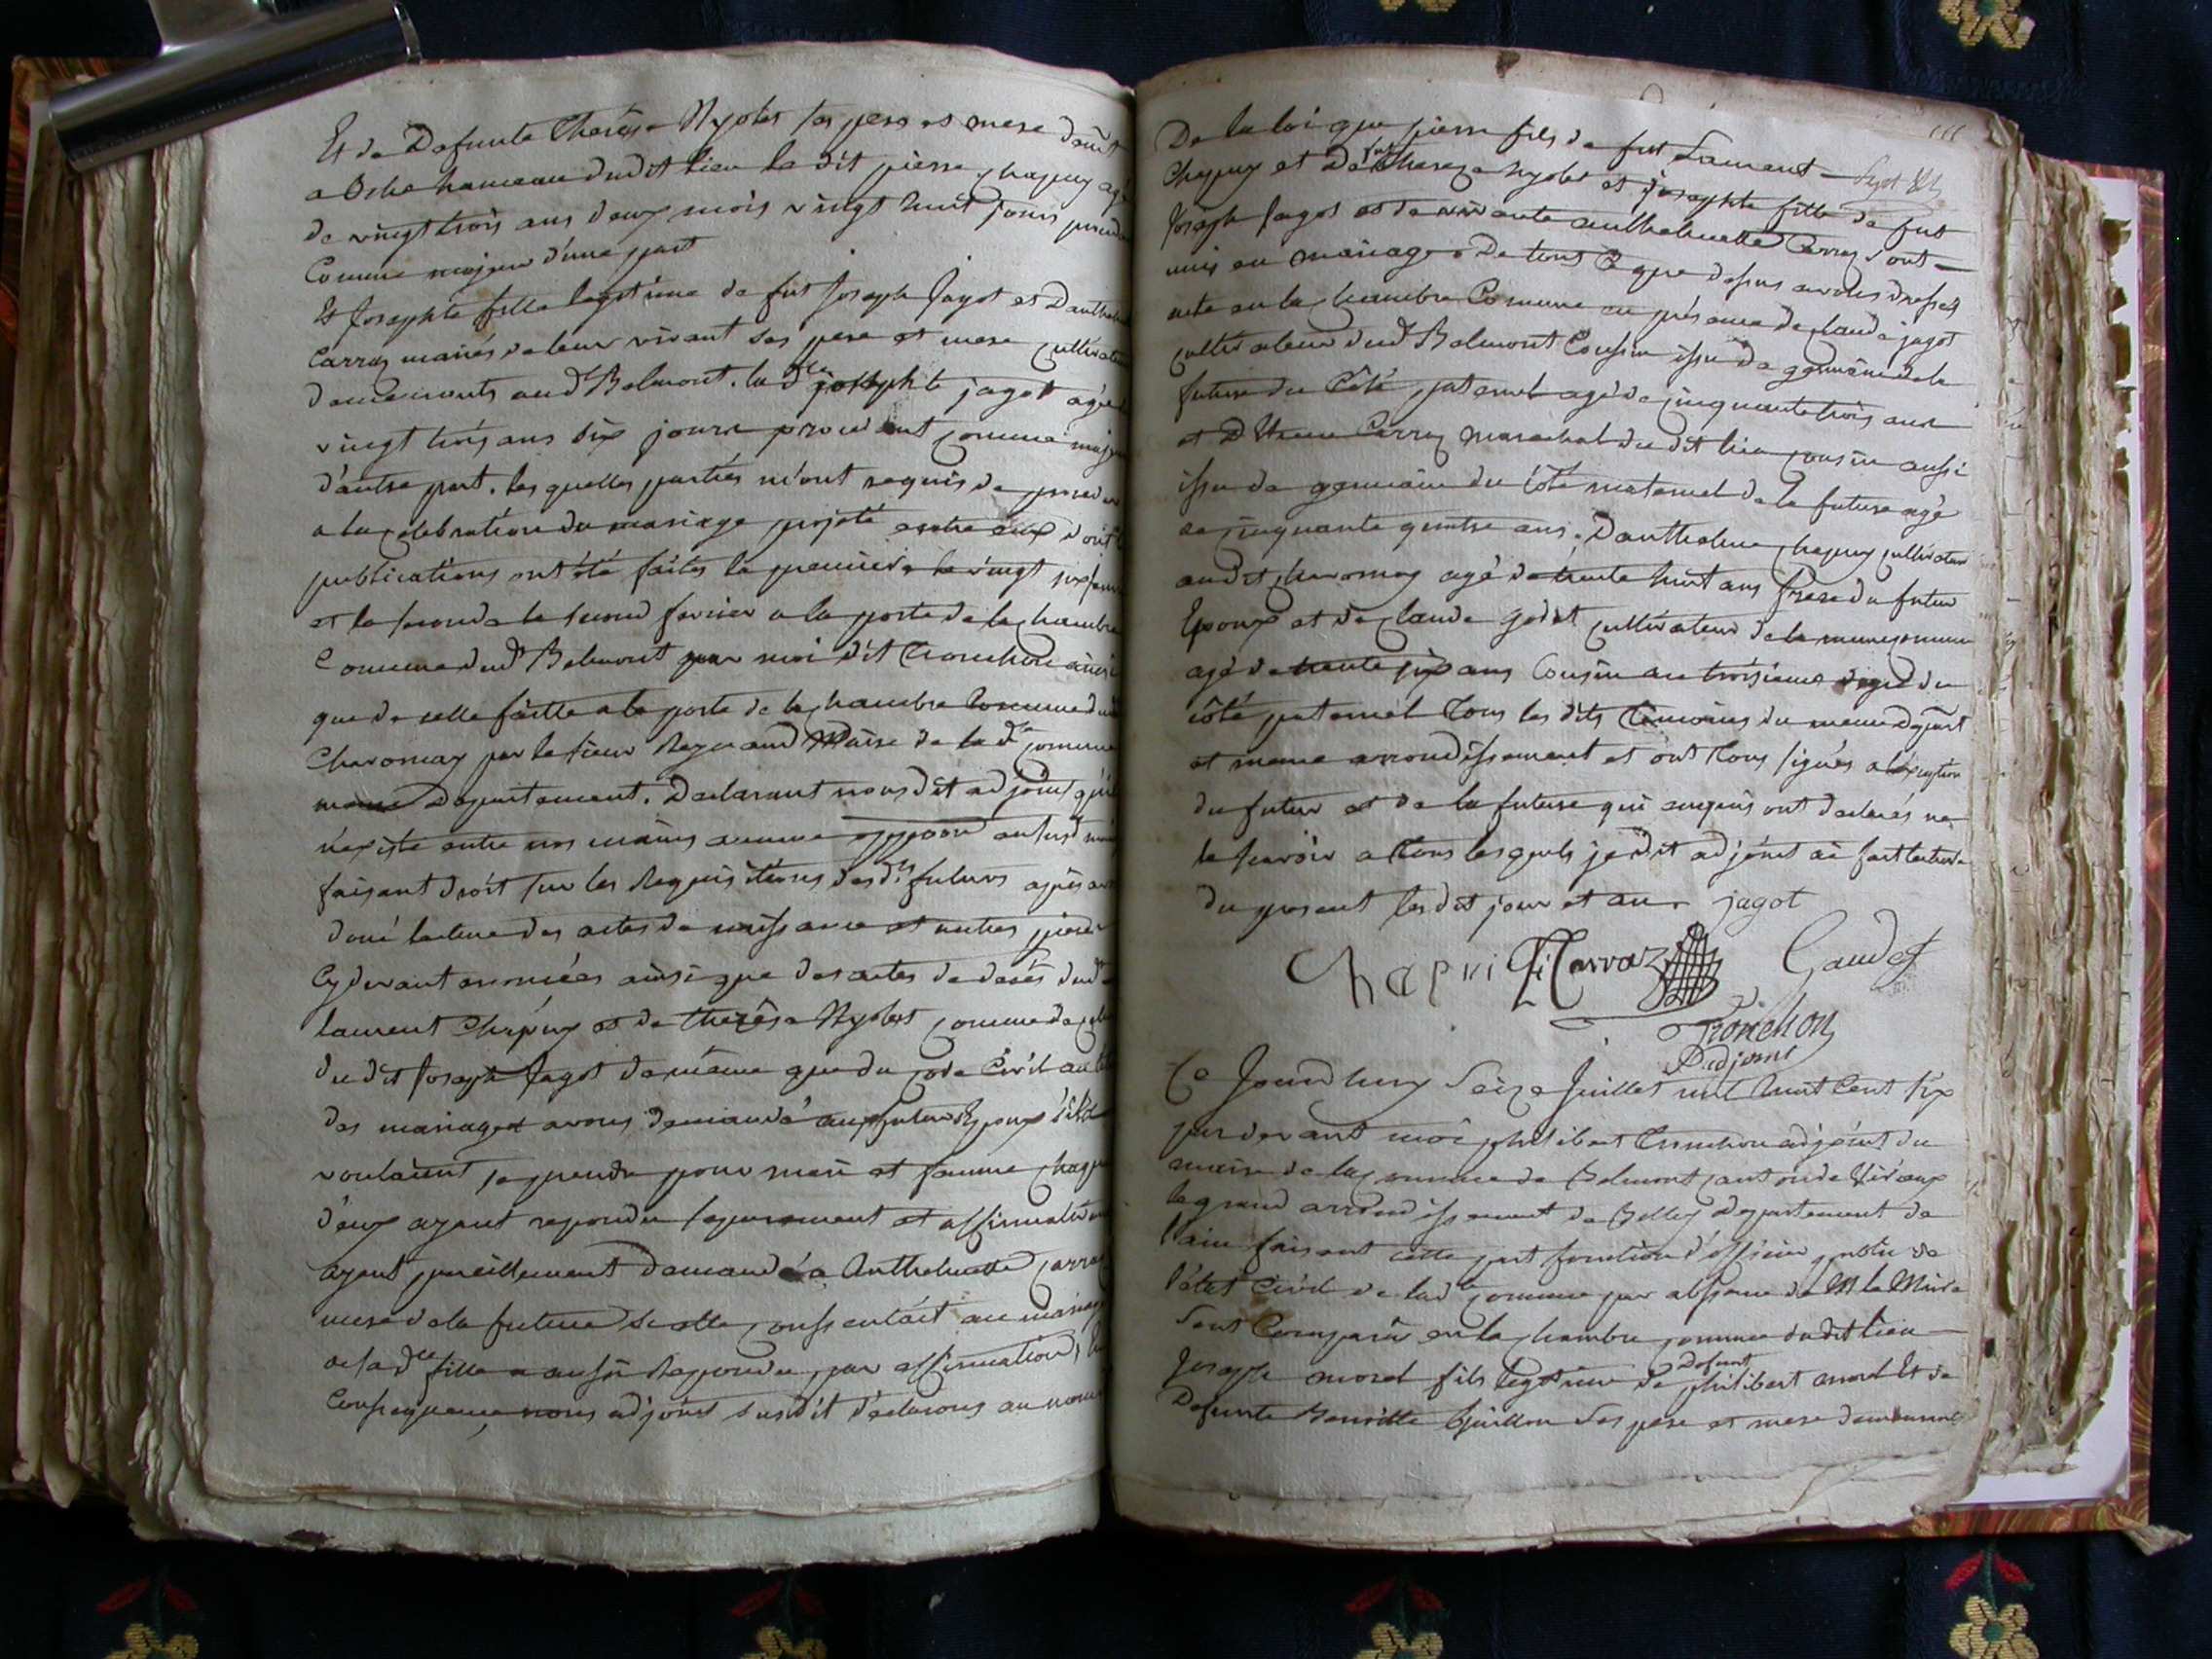 Et de Defunte Therese Nyolet ses pere et mere demt
a hameau dudit lieu le dit pierre chapuy agé
de vingt trois ans deux mois vingt huit jours
Comme majeur d'une part
Et Josephte fille legitime de fut Joseph Jagot et Danthel
Carraz mariés de leur vivant ses pere et mere cultivateur
demeurants aud Belmont. la dte josephte jagot agée
vingt trois ans six jours procedant comme majeure
d'autre part. les quelles parties m'ont requis de proceder
a la celebration du mariage projeté entre eux dont
publications ont été faites la premiere le vingt six
et la seconde le second fevrier a la porte de la chambre
Comune dud Belmont par moi dit Tronchon ainsi
que de celle faitte a la porte de la chambre Comune
par le sieur Maire de la de comune
meme Departement. Declarant nous dit adjoint qu'il
n'existe entre nos mains aucune au susd
faisant droit sur les Requisitions desdts futurs après
doné lecture des actes de naissance et autres pieces
Cy devant anoncées ainsi que des actes de decés dud
laurent Chapuy et de therese Nyolet comme de celui
du dit Joseph Jagot de même que du code Civil au
des mariages avons demandé aux futurs Epoux s'ils
voulaient se prendre pour mari et femme chaqu
d'eux ayant repondu separement et affirmativ
ayant pareillement demandé a Anthelmette carraz
mere de la future si elle conssentait au mariage
de sa de fille a aussi Repondu par affirmation,
Consequence nous adjoint susdit declarons au nom
De la loi que pierre fils de fut Laurent
Chapuy et De fute Thereze Nyolet et josephte fille de fut
Joseph Jagot et de vivante anthelmette Carraz sont
unis en mariage. De tout Ce que dessus avons dressé
acte en la chambre Comune en présence de claude jagot
cultivateur dud Belmont Cousin issu de germain de la
future du Côté paternel agé de cinquante trois ans
et D Carraz marechal du dit lieu cousin aussi
issu de germain du côté maternel de la future agé
de cinquante quatre ans. Danthelme chapuy cultivateur
audit agé de trente huit ans frere du futur
Epoux et de claude godet cultivateur de la meme comune
agé de trente six ans Cousin au troisieme degré du
côté paternel Tous les dits témoins du meme depart
et meme arrondissement et ont Tous signés a l'exception
du futur et de la future qui enquis ont declarés ne
le scavoir a Tous lesquels je dit adjoint ai fait lecture
du present les dit jour et an. jagot
Chapui Carraz Gaudet
Tronchon
adjoint
Ce Jourdhuy Seize Juillet mil huit Cent six
par devant moi philibert Tronchon adjoint du
maire de la commune de Belmont canton de Virieux
le grand arrondissement de Belley departement de
l'ain faisant cette part fonction d'officier public de
l'état Civil de lade comune par abssence de M le Maire
Sont Comparus en la chambre comune dudit lieu
Joseph morel fils legitime de Defunt philibert morel Et de
Defunte Benoitte Guillon Ses pere et mere demeurant